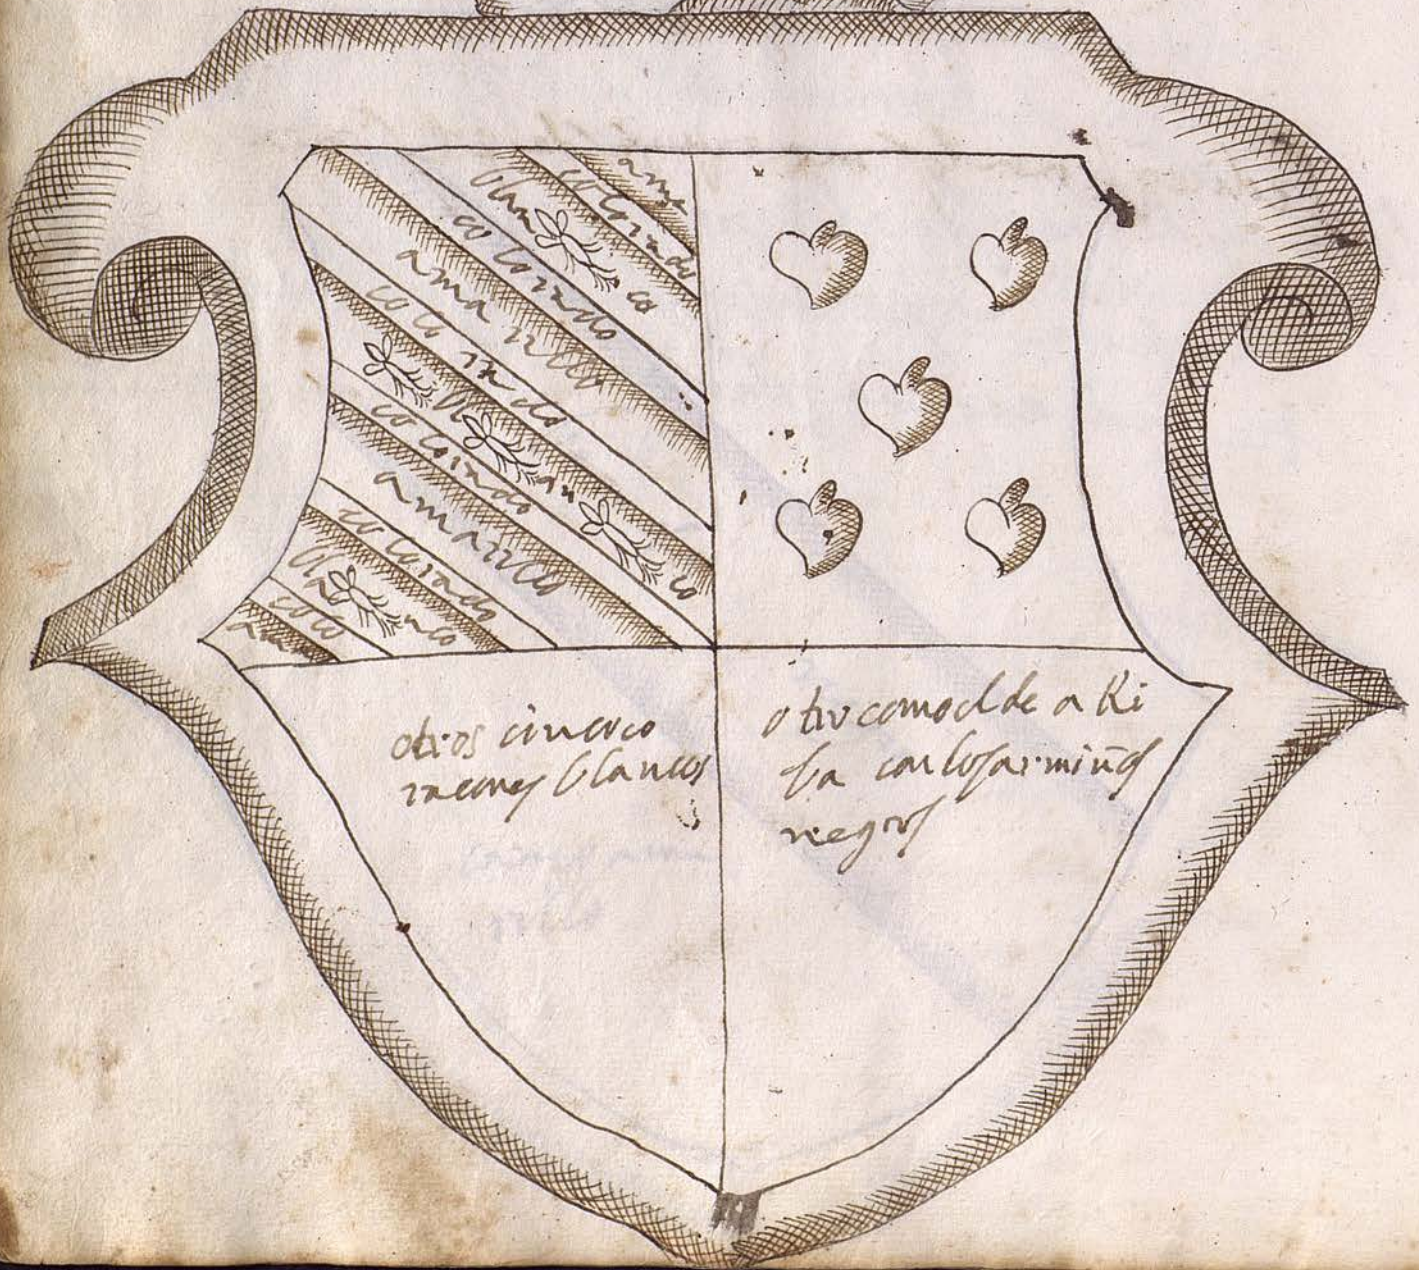 ama
colorado
blan co
colorado
ama rillo
colo ra do
bl an co
colorado
amarillo
colorado
bla nco
colo
ama
otros cinco co
racones blancos
otro como el de a Ri
ba con los armiños
negros